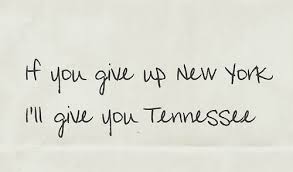 If you give up New York
I'll give you Tennessee